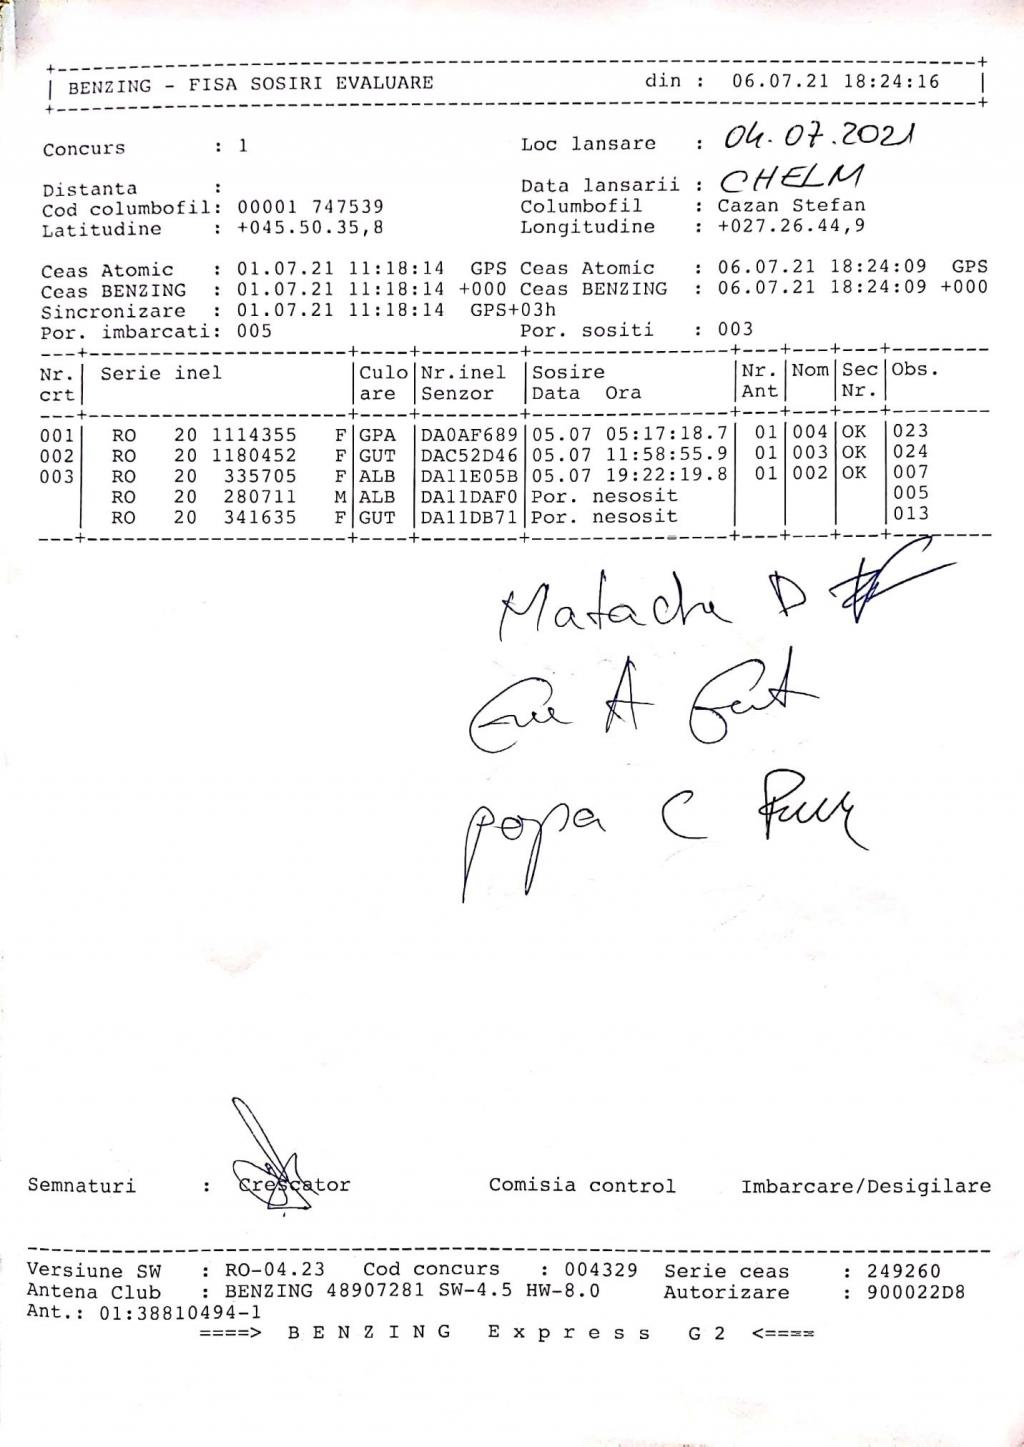 BENZING - FISA SOSIRI EVALUARE din : 06.07.21 18:24:16
Concurs : 1 Loc lansare : 04.07.2021
Distanta : Data lansarii : CHELM
Cod columbofil: 00001 747539 Columbofil : Cazan Stefan
Latitudine : +045.50.35,8 Longitudine : +027.26.44,9
Ceas Atomic : 01.07.21 11:18:14 GPS Ceas Atomic : 06.07.21 18:24:09 GPS
Ceas BENZING : 01.07.21 11:18:14 +000 Ceas BENZING : 06.07.21 18:24:09 +000
Sincronizare : 01.07.21 11:18:14 GPS+03h
Por. imbarcati: 005 Por. sositi : 003
Nr. Serie inel Culo Nr.inel Sosire Nr. Nom Sec Obs.
crt are Senzor Data Ora Ant Nr.
001 RO 20 1114355 F GPA DA0AF689 05.07 05:17:18.7 01 004 OK 023
002 RO 20 1180452 F GUT DAC52D46 05.07 11:58:55.9 01 003 OK 024
003 RO 20 335705 F ALB DA11E05B 05.07 19:22:19.8 01 002 OK 007
RO 20 280711 M ALB DA11DAF0 Por. nesosit 005
RO 20 341635 F GUT DA11DB71 Por. nesosit 013
Matache D
A
popa C
Semnaturi : Crescator Comisia control Imbarcare/Desigilare
Versiune SW : RO-04.23 Cod concurs : 004329 Serie ceas : 249260
Antena Club : BENZING 48907281 SW-4.5 HW-8.0 Autorizare : 900022D8
Ant.: 01:38810494-1
====> B E N Z I N G E x p r e s s G 2 <====